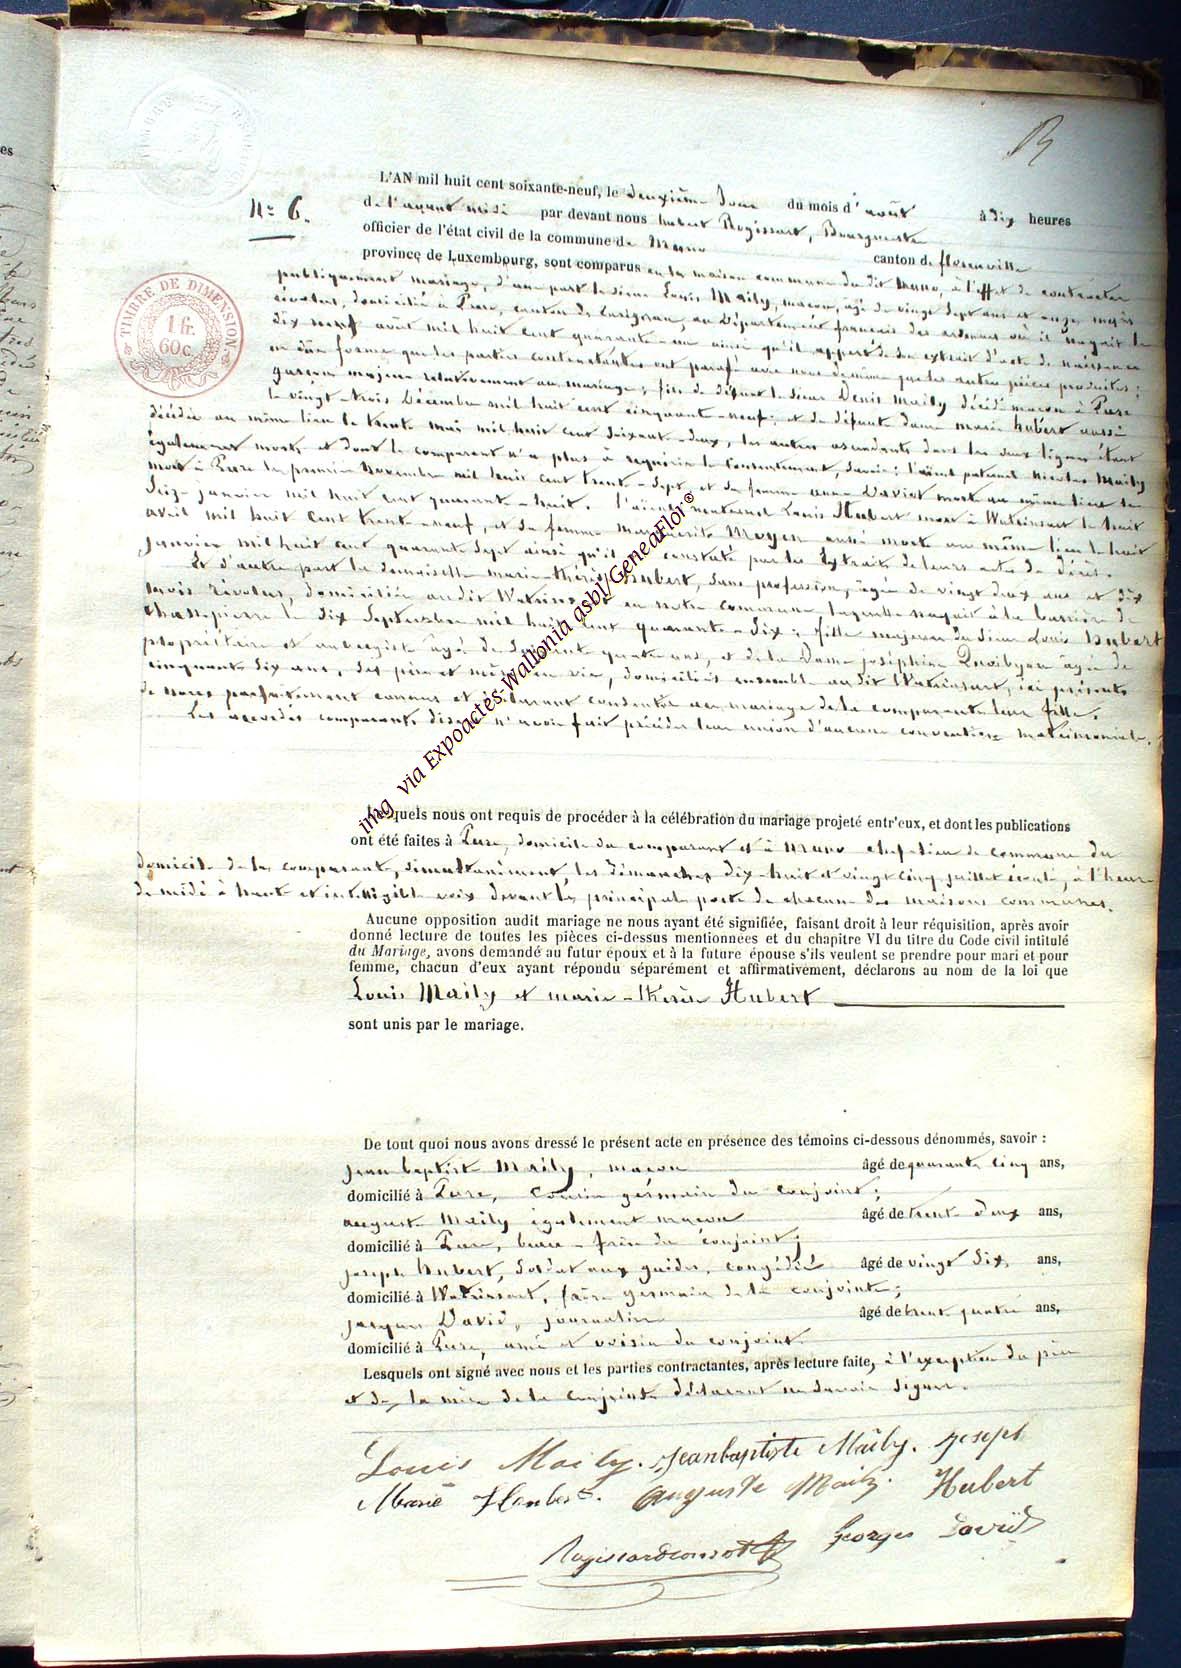 N° 6.
L'AN mil huit cent soixante-neuf, le deuxième Jour du mois d'août à dix heures
de l'avant midi par devant nous hubert Rogissart, Bourgmestre
officier de l'état civil de la commune de Muno canton de florenville
province de Luxembourg, sont comparus en la maison commune du dit Muno, à l'effet de contracter
publiquement mariage, d'une part le sieur Louis Maily, maçon, âgé de vingt Sept ans et onze mois
révolus, domicilié à Pure, canton de Carignan, au Département français des ardennes où il naquit le
dix neuf août mil huit cent quarante-un ainsi qu'il appert de son extrait d'acte de naissance
en dûe forme que les parties contractantes ont paraf avec nous de même que les autres pièces produites;
garçon majeur relativement au mariage; fils de défunt le sieur Denis Maily décédé maçon à Pure
le vingt-trois Décembre mil huit cent cinquante-neuf; et de défunte dame marie hubert aussi
décédée au même lieu le trente mai mil huit cent soixante-deux, les autres ascendants dans les deux lignes étant
également morts et dont le comparant n'a plus à requérir le Consentement, Savoir: l'aïeul paternel Nicolas Maily
mort à Pure le premier Novembre mil huit cent trente-Sept, et sa femme anne Daviet morte au même lieu le
Seize janvier mil huit cent quarante-huit. l'aïeul maternel Louis Hubert mort à Watrinsart le huit
avril mil huit cent trente-neuf, et sa femme Marguerite Moyen aussi morte au même lieu le huit
janvier mil huit cent quarante Sept ainsi qu'il est constaté par les Extraits de leurs actes de décès.
Et d'autre part la demoiselle marie-thérèse Hubert, Sans profession, âgée de vingt deux ans et dix
mois révolus, domiciliée audit Watrinsart en notre commune, laquelle naquit à la barrière de
Chassepierre le dix Septembre mil huit cent quarante-Six; fille majeure du Sieur Louis Hubert
propriétaire et aubergiste âgé de Soixante quatre ans, et de la Dame joséphine âgée de
cinquante Six ans, Ses père et mère en vie, domiciliés ensemble audit Watrinsart, ici présents
de nous parfaitement connus et déclarant consentir au mariage de la comparante leur fille.
Les comparants disent n'avoir fait précéder leur union d'aucune convention matrimoniale.
Lesquels nous ont requis de procéder à la célébration du mariage projeté entr'eux, et dont les publications
ont été faites à Pure, domicile du comparant et à Muno chef-lieu de commune du
domicile de la comparante, simultanément, les dimanches dix-huit et vingt cinq juillet écoulé, à l'heure
de midi à haute et intelligible voix devant la principale porte de chacune des maisons communes.
Aucune opposition audit mariage ne nous ayant été signifiée, faisant droit à leur réquisition, après avoir
donné lecture de toutes les pièces ci-dessus mentionnées et du chapitre VI du titre du Code civil intitulé
du Mariage, avons demandé au futur époux et à la future épouse s'ils veulent se prendre pour mari et pour
femme, chacun d'eux ayant répondu séparément et affirmativement, déclarons au nom de la loi que
Louis Maily et marie-thérèse Hubert
sont unis par le mariage.
De tout quoi nous avons dressé le présent acte en présence des témoins ci-dessous dénommés, savoir :
jean baptiste Maily, maçon âgé de quarante cinq ans,
domicilié à Pure, Cousin germain du conjoint;
auguste Maily également maçon âgé de trente deux ans,
domicilié à Pure, beau-frère du conjoint;
joseph hubert, soldat aux guides, congédié âgé de vingt Six ans,
domicilié à Watrinsart, frère germain de la conjointe;
jacques David, journalier âgé de trente quatre ans,
domicilié à Pure, ami et voisin du conjoint.
Lesquels ont signé avec nous et les parties contractantes, après lecture faite, à l'exception du père
et de la mère de la conjointe déclarant ne savoir signer.
Louis Maily. Jeanbaptiste Maily. Joseph
Marie Hubert. Auguste Maily. Hubert
Georges David
TIMBRE DE DIMENSION
1 fr.
60 c.
img via Expoactes-Wallonia asbl/GeneaFloi®